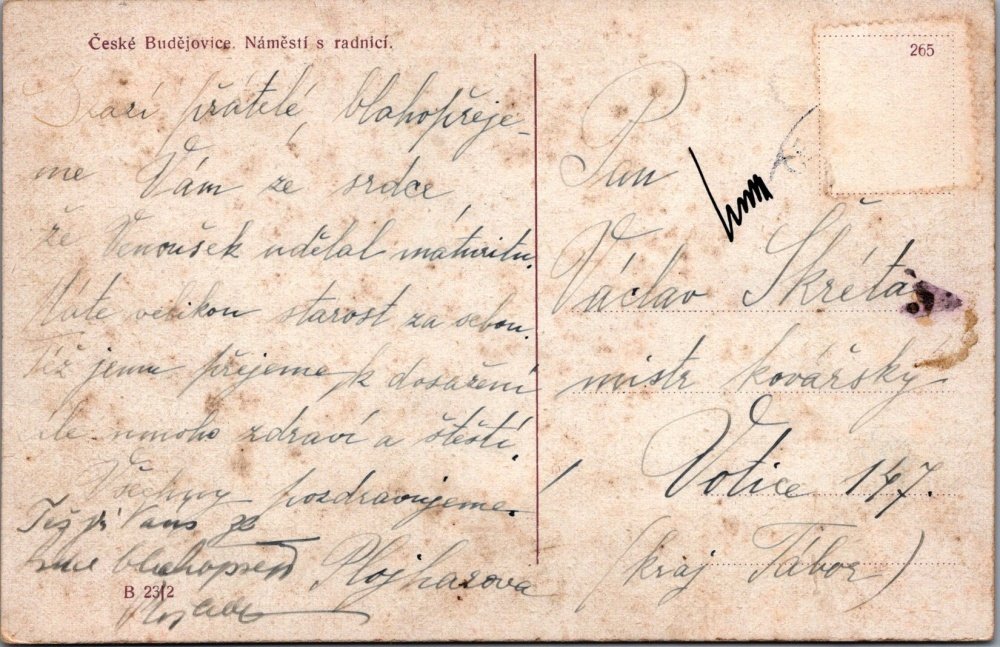 České Budějovice. Náměstí s radnicí.
265
Drazí přátelé blahopřeje-
me Vám ze srdce,
že Venoušek udělal maturitu.
Máte velikou starost za sebou.
Též jemu přejeme k dosažení
cíle mnoho zdraví a štěstí.
Všechny pozdravujeme.
Plojharova
B 23/2
Pan
Václav Skréta
mistr kovářský
Votice 147.
(kraj Tábor)